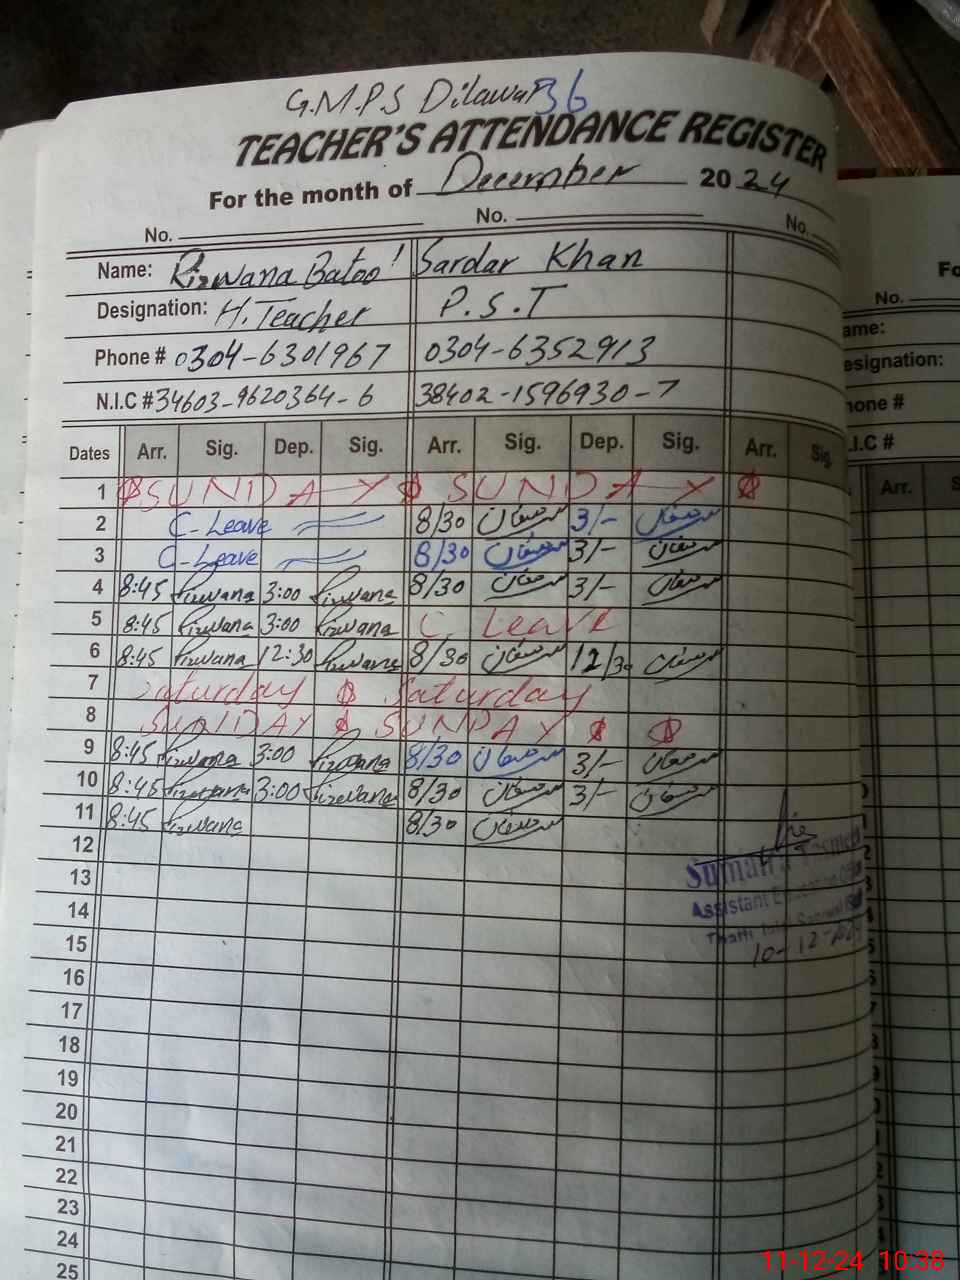 G.M.P.S Dilawar 36
TEACHER'S ATTENDANCE REGISTER
For the month of December 2024
No. No. No.
Name: Rizwana Batool Sardar Khan
Designation: H. Teacher P.S.T
Phone # 0304-6301967 0304-6352913
N.I.C # 34603-9620364-6 38402-1596930-7
Dates Arr. Sig. Dep. Sig. Arr. Sig. Dep. Sig. Arr. Sig.
1 SUNDAY SUNDAY
2 C-Leave 8/30 3/-
3 C-Leave 8/30 3/-
4 8:45 Rizwana 3:00 Rizwana 8/30 3/-
5 8:45 Rizwana 3:00 Rizwana C Leave
6 8:45 Rizwana 12:30 Rizwana 8/30 12/30
7 Saturday Saturday
8 SUNDAY SUNDAY
9 8:45 Rizwana 3:00 Rizwana 8/30 3/-
10 8:45 Rizwana 3:00 Rizwana 8/30 3/-
11 8:45 Rizwana 8/30
12
13
14
15
16
17
18
19
20
21
22
23
24
25
Assistant
10-12-2024
Fo
No.
ame:
esignation:
hone #
.I.C #
Arr. S
11-12-24 10:38